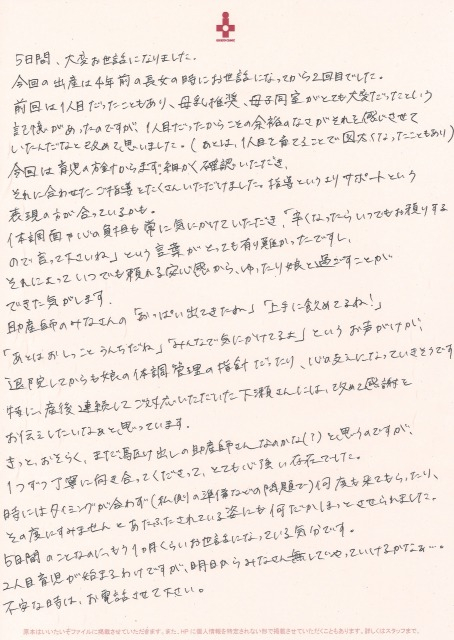 5日間、大変お世話になりました。
今回の出産は4年前の長女の時にお世話になってから2回目でした。
前回は1人目だったこともあり、母乳推奨、母子同室がとても大変だったという
記憶があったのですが、1人目だからこその余裕のなさがそれを感じさせて
いたんだなと改めて思いました。(あとは、1人目を育てることで図太くなったこともあり)
今回は育児の方針からまず細かく確認いただき、
それに合わせたご指導をたくさんいただけました。指導というよりサポートという
表現の方が合っているかも。
体調面や心の負担も常に気にかけていただき、「辛くなったらいつでもお預りする
ので言って下さいね」という言葉がとっても有り難かったですし、
それによっていつでも頼れる安心感から、ゆったり娘と過ごすことが
できた気がします。
助産師のみなさんの「おっぱい出てきたね」「上手に飲めてるね!」
「あとはおしっこうんちだね」「みんなで気にかけてるよ」というお声がけが、
退院してからも娘の体調管理の指針だったり、心の支えになっていきそうです
特に、産後連続してご対応いただいた下瀬さんには、改めて感謝を
お伝えしたいなぁと思っています。
きっと、おそらく、まだ駆け出しの助産師さんなのかな(?)と思うのですが、
1つずつ丁寧に向き合ってくださって、とても心強い存在でした。
時にはタイミングが合わず(私側の準備などの問題で)何度も来てもらったり、
その度にすみませんとあたふたされている姿にも何だかほっとさせられました。
5日間のことなのに、もう1ヵ月くらいお世話になっている気分です。
2人目育児が始まるわけですが、明日からみなさん無しでやっていけるかなぁ…。
不安な時は、お電話させて下さい。
原本はいいたいぞファイルに掲載させていただきます。また、HPに個人情報を特定されない形で掲載させていただくこともあります。詳しくはスタッフまで。